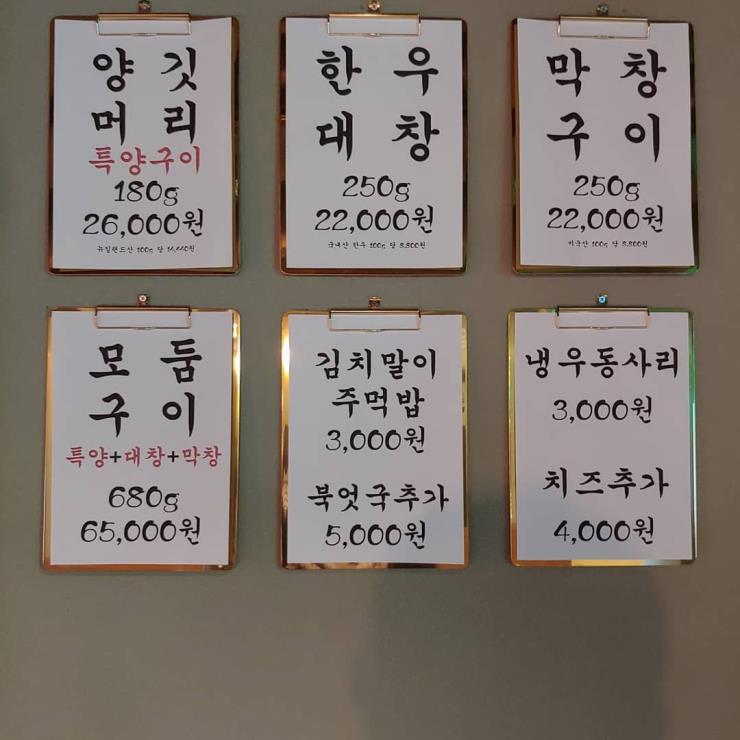 양 깃
머 리
특양구이
180g
26,000원
뉴질랜드산 100g 당 14,440원
한 우
대 창
250g
22,000원
국내산 한우 100g 당 8,800원
막 창
구 이
250g
22,000원
미국산 100g 당 8,800원
모 둠
구 이
특양+대창+막창
680g
65,000원
김치말이
주먹밥
3,000원
북엇국추가
5,000원
냉우동사리
3,000원
치즈추가
4,000원